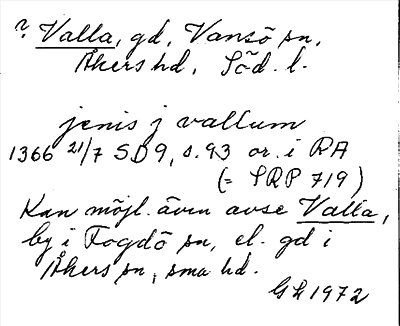 ? Valla, gd, Vansö sn,
Åkers hd, Söd. l.
jenis j vallum
1366 21/7 SD9, s. 93 or. i RA
(= SRP 719)
Kan möjl. även avse Valla,
by i Fogdö sn, el. gd i
Åkers sn, sma hd.
GL 1972